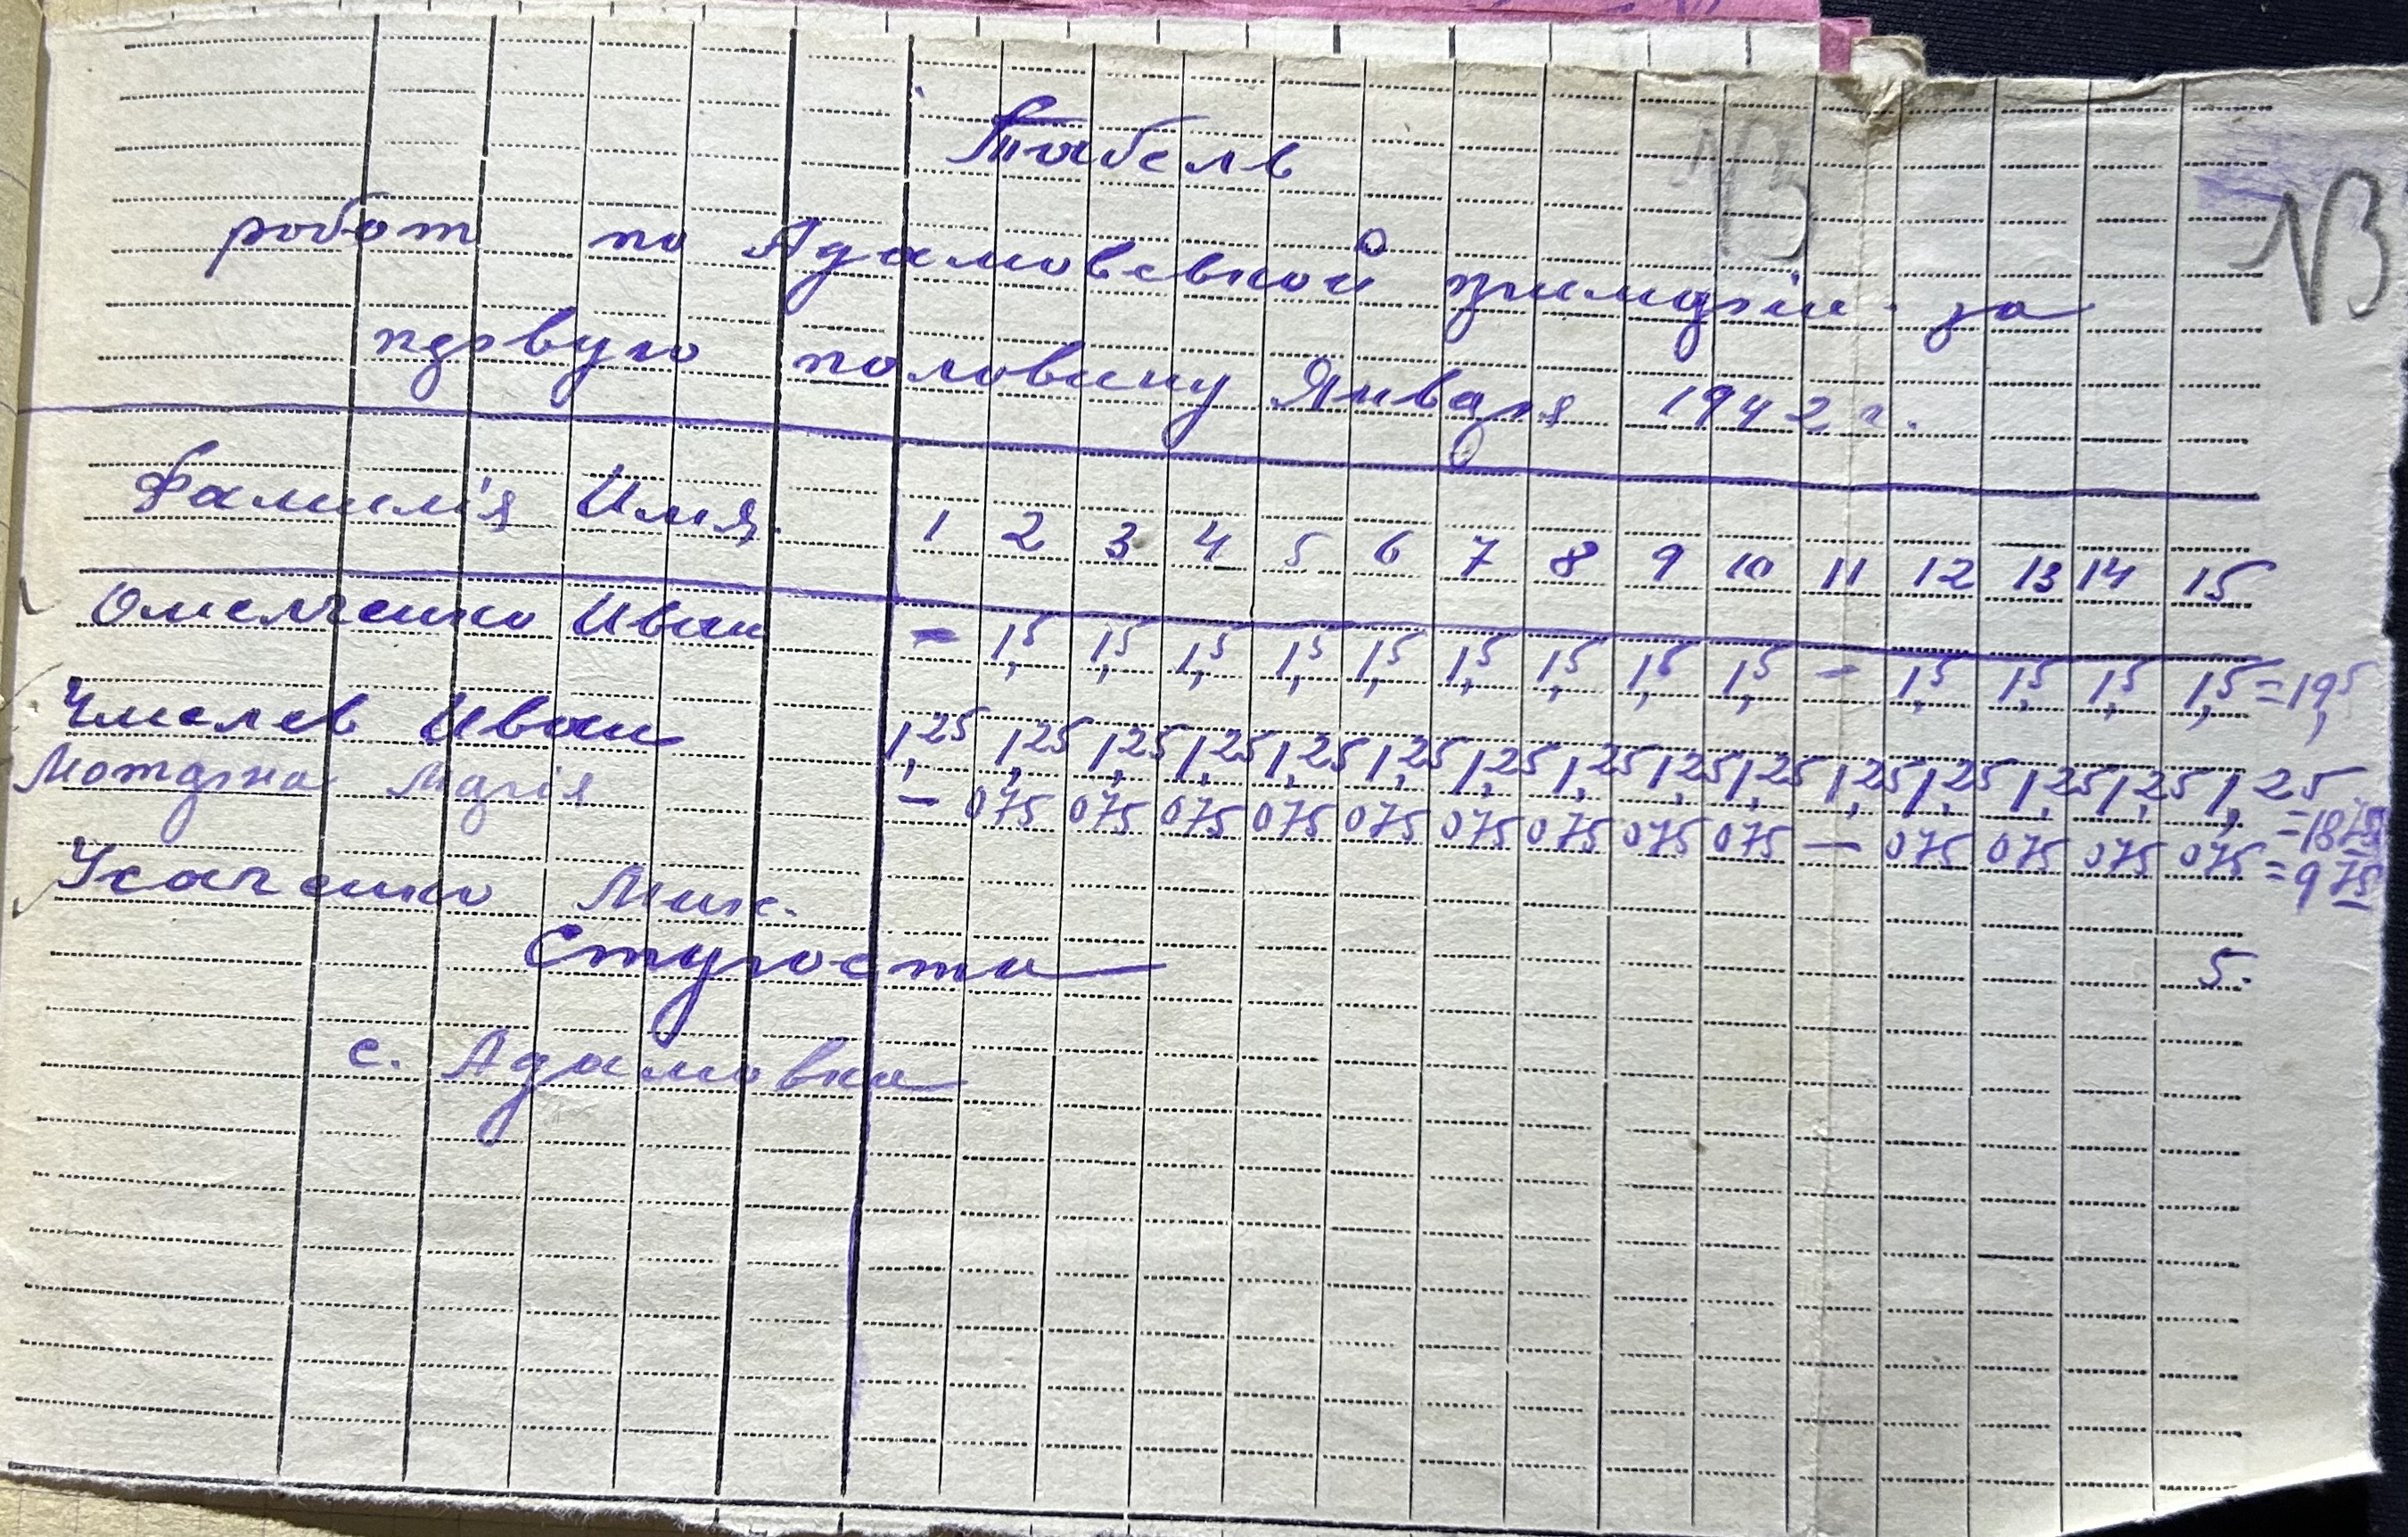 Табель
№3
робот по Адамовской примарiи за
первую половину Января 1942 г.
Фамилiя Имя. 1 2 3 4 5 6 7 8 9 10 11 12 13 14 15
Омельченко Иван - 1,5 1,5 1,5 1,5 1,5 1,5 1,5 1,5 1,5 - 1,5 1,5 1,5 1,5 = 19,5
Чмелев Иван 1,25 1,25 1,25 1,25 1,25 1,25 1,25 1,25 1,25 1,25 1,25 1,25 1,25 1,25 1,25
= 18,75
Марiя — 075 075 075 075 075 075 075 075 075 — 075 075 075 075 = 975
Усаченко Мих. 5.
Староста
с. Адамовка